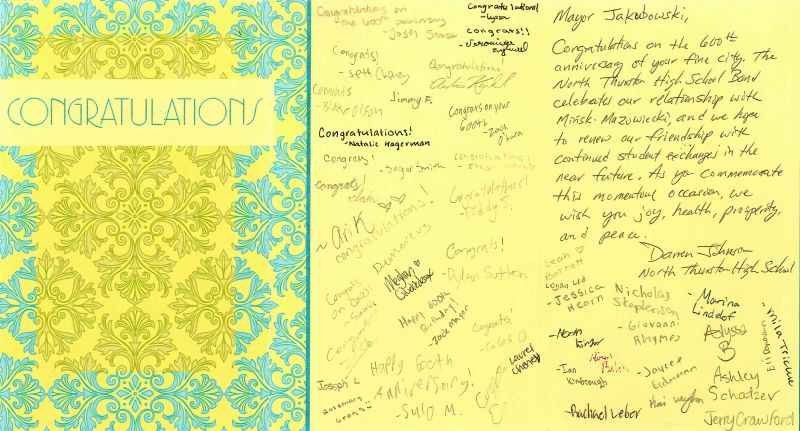 CONGRATULATIONS
Congratulations on
the 600th anniversary
- Josh
Congrats!
- Seth Chaney
Congrats
- Blake Olson
Jimmy F.
Congratulations!
- Natalie Hagerman
Congrats!
- Sager Smith
congrats!
~ Arik
congratulations!
Demarcus
Congrats
on 600!
Congratulations!
- Lyssa
congrats!!
- Veronique
Congratulations!
Congrats on your
600th
- Zack
O'Hara
congratulations!
- Ethan
Congratulations!
Teddy S.
Congrats!
- Dylan Sutton
Meghan
Happy 600th
Birthday!
- zack mayer
Congrats!
- Caleb D
Lauren
Cheney
Happy 600th
Anniversary!
- Suly M.
Joseph L
Rosemary
Mayor Jakubowski,
Congratulations on the 600th
anniversary of your fine city. The
North Thurston High School Band
celebrates our relationship with
Mińsk Mazowiecki, and we hope
to renew our friendship with
continued student exchanges in the
near future. As you commemorate
this momentous occasion, we
wish you joy, health, prosperity,
and peace.
Darren Johnson
North Thurston High School
Leah
Barrett
Logan Led
- Jessica
Hearn
Nicholas
Stephenson
- Marina
Lindelof
- Noah
- Giovanni
Rhymes
Alyssa
B
- Ian
Kimbrough
- Jaycee
Eidmann
Ashley
Schatzer
- Rachael Leber
Kai Vaughn
Jerry Crawford
Eli Donovan
- Mila Teichue